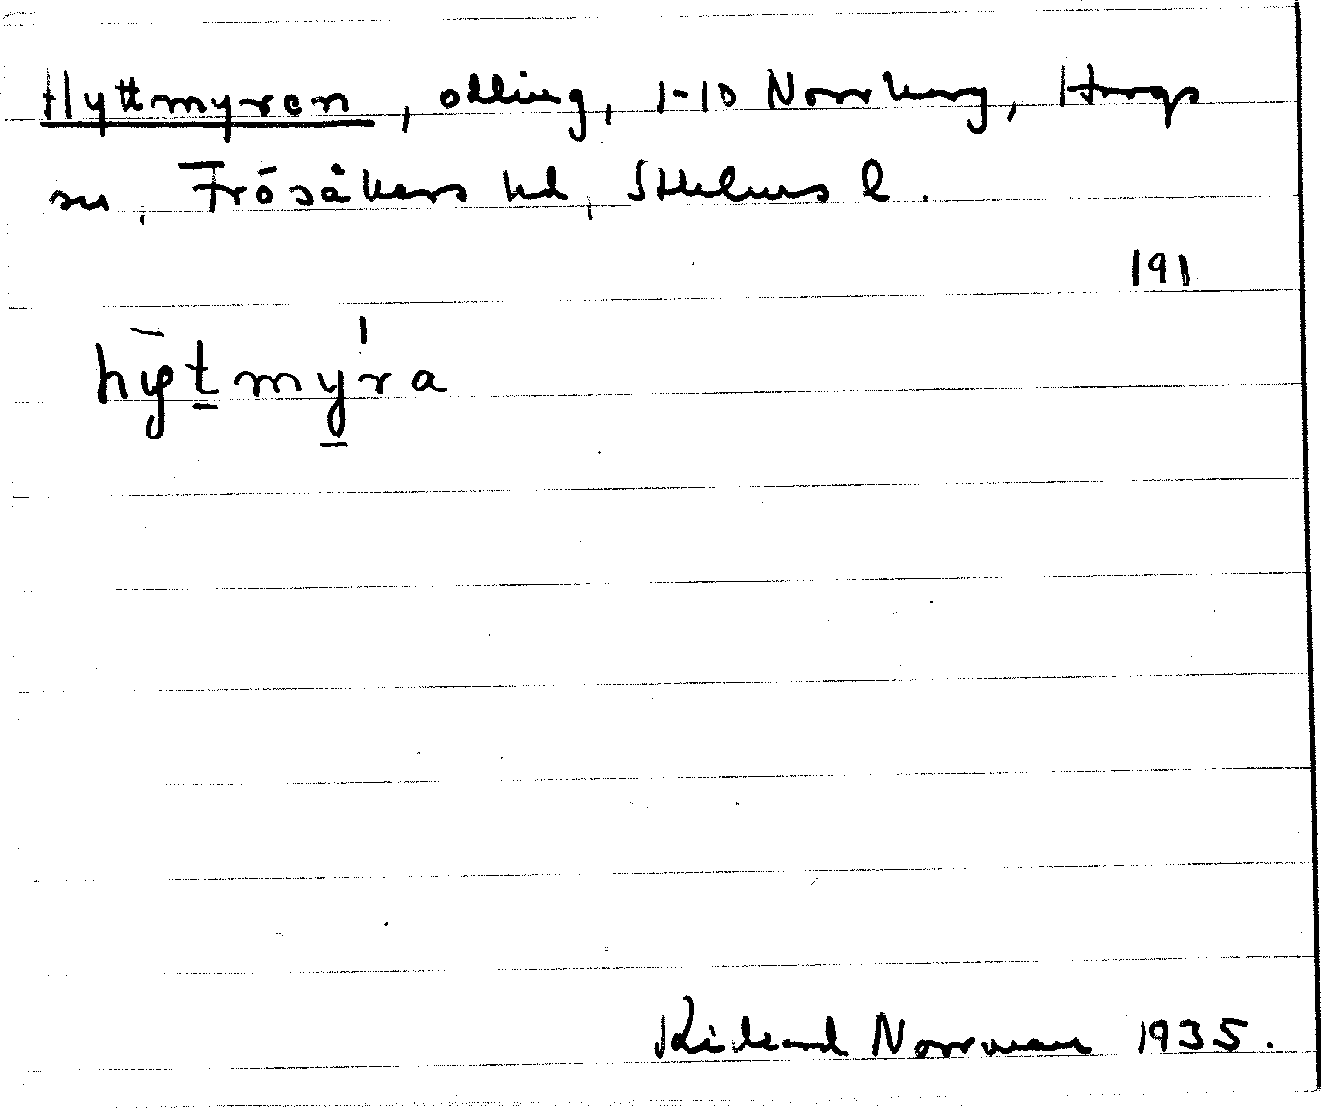 Hyttmyren, odling, 1-10 Norrberg, Hargs
sn, Frösåkers hd, Sthlms l.
191
hytmyra
Rickard Norrman 1935.